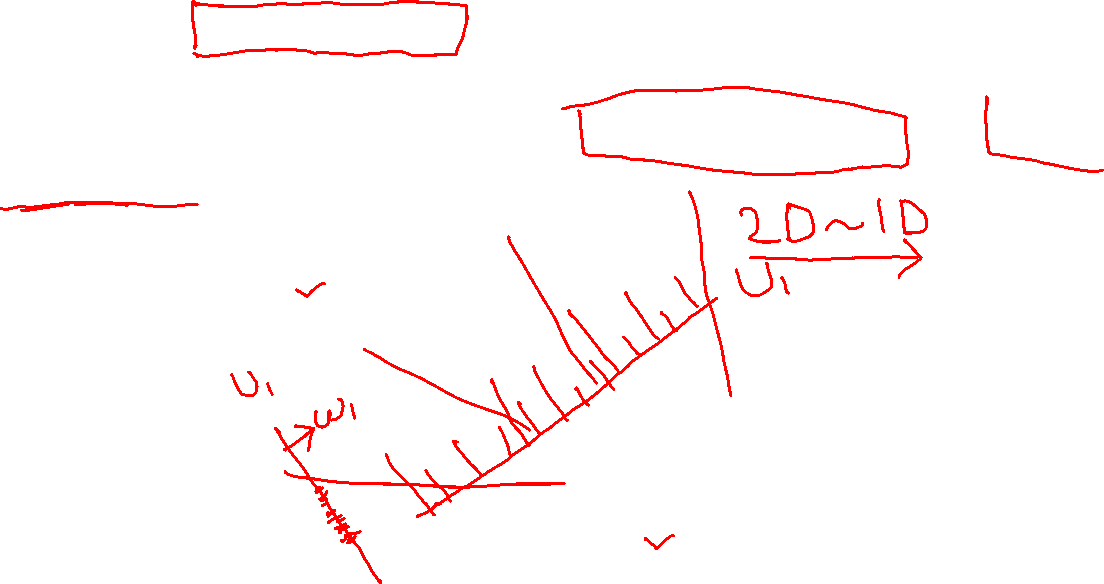 2D~1D
U₁
U₁
ω₁